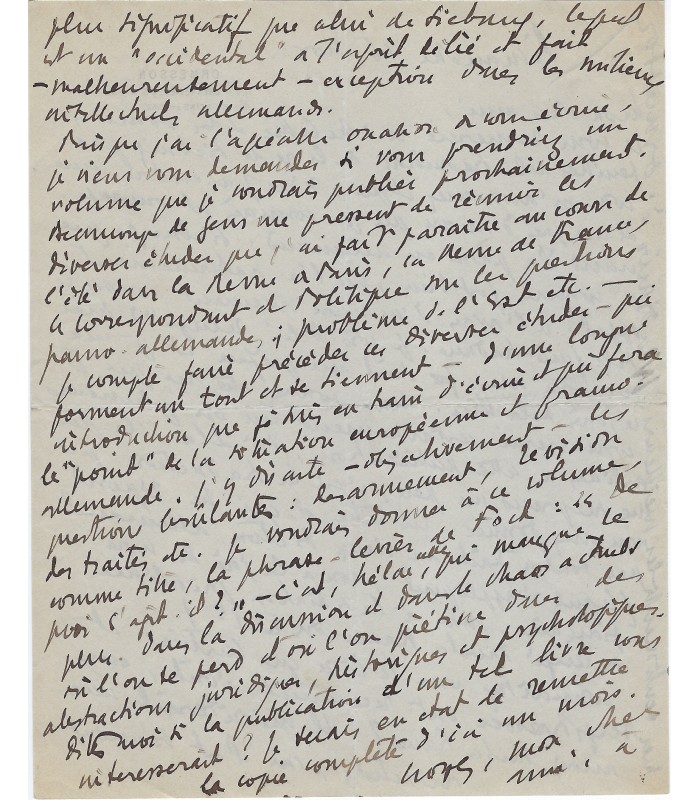 plus significatif que celui de Sieburg, lequel
est un "occidental" à l'esprit délié et fait
- malheureusement - exception dans les milieux
intellectuels allemands.
Puisque j'ai l'agréable occasion de vous écrire,
je viens vous demander si vous prendriez un
volume que je voudrais publier prochainement.
Beaucoup de gens me pressent de réunir les
diverses études que j'ai fait paraître au cours de
l'été dans la Revue de Paris, la Revue de France,
le Correspondant et Politique sur les questions
franco-allemandes, problème de l'Est etc. —
Je compte faire précéder ces diverses études - qui
forment un tout et se tiennent - d'une longue
introduction que je suis en train d'écrire et qui fera
le "point" de la situation européenne et franco-
allemande. J'y discute - objectivement - les
questions brûlantes : désarmement, révision
des traités etc. Je voudrais donner à ce volume,
comme titre, la phrase-levier de Foch : "De
quoi s'agit-il ?" - C'est, hélas, ce qui manque le
plus dans la discussion et dans le chaos actuels
où l'on se perd et où l'on piétine dans des
abstractions juridiques, historiques et psychologiques.
Dites moi si la publication d'un tel livre vous
intéresserait ? Je serais en état de remettre
la copie complète d'ici un mois.
mon cher
ami, à